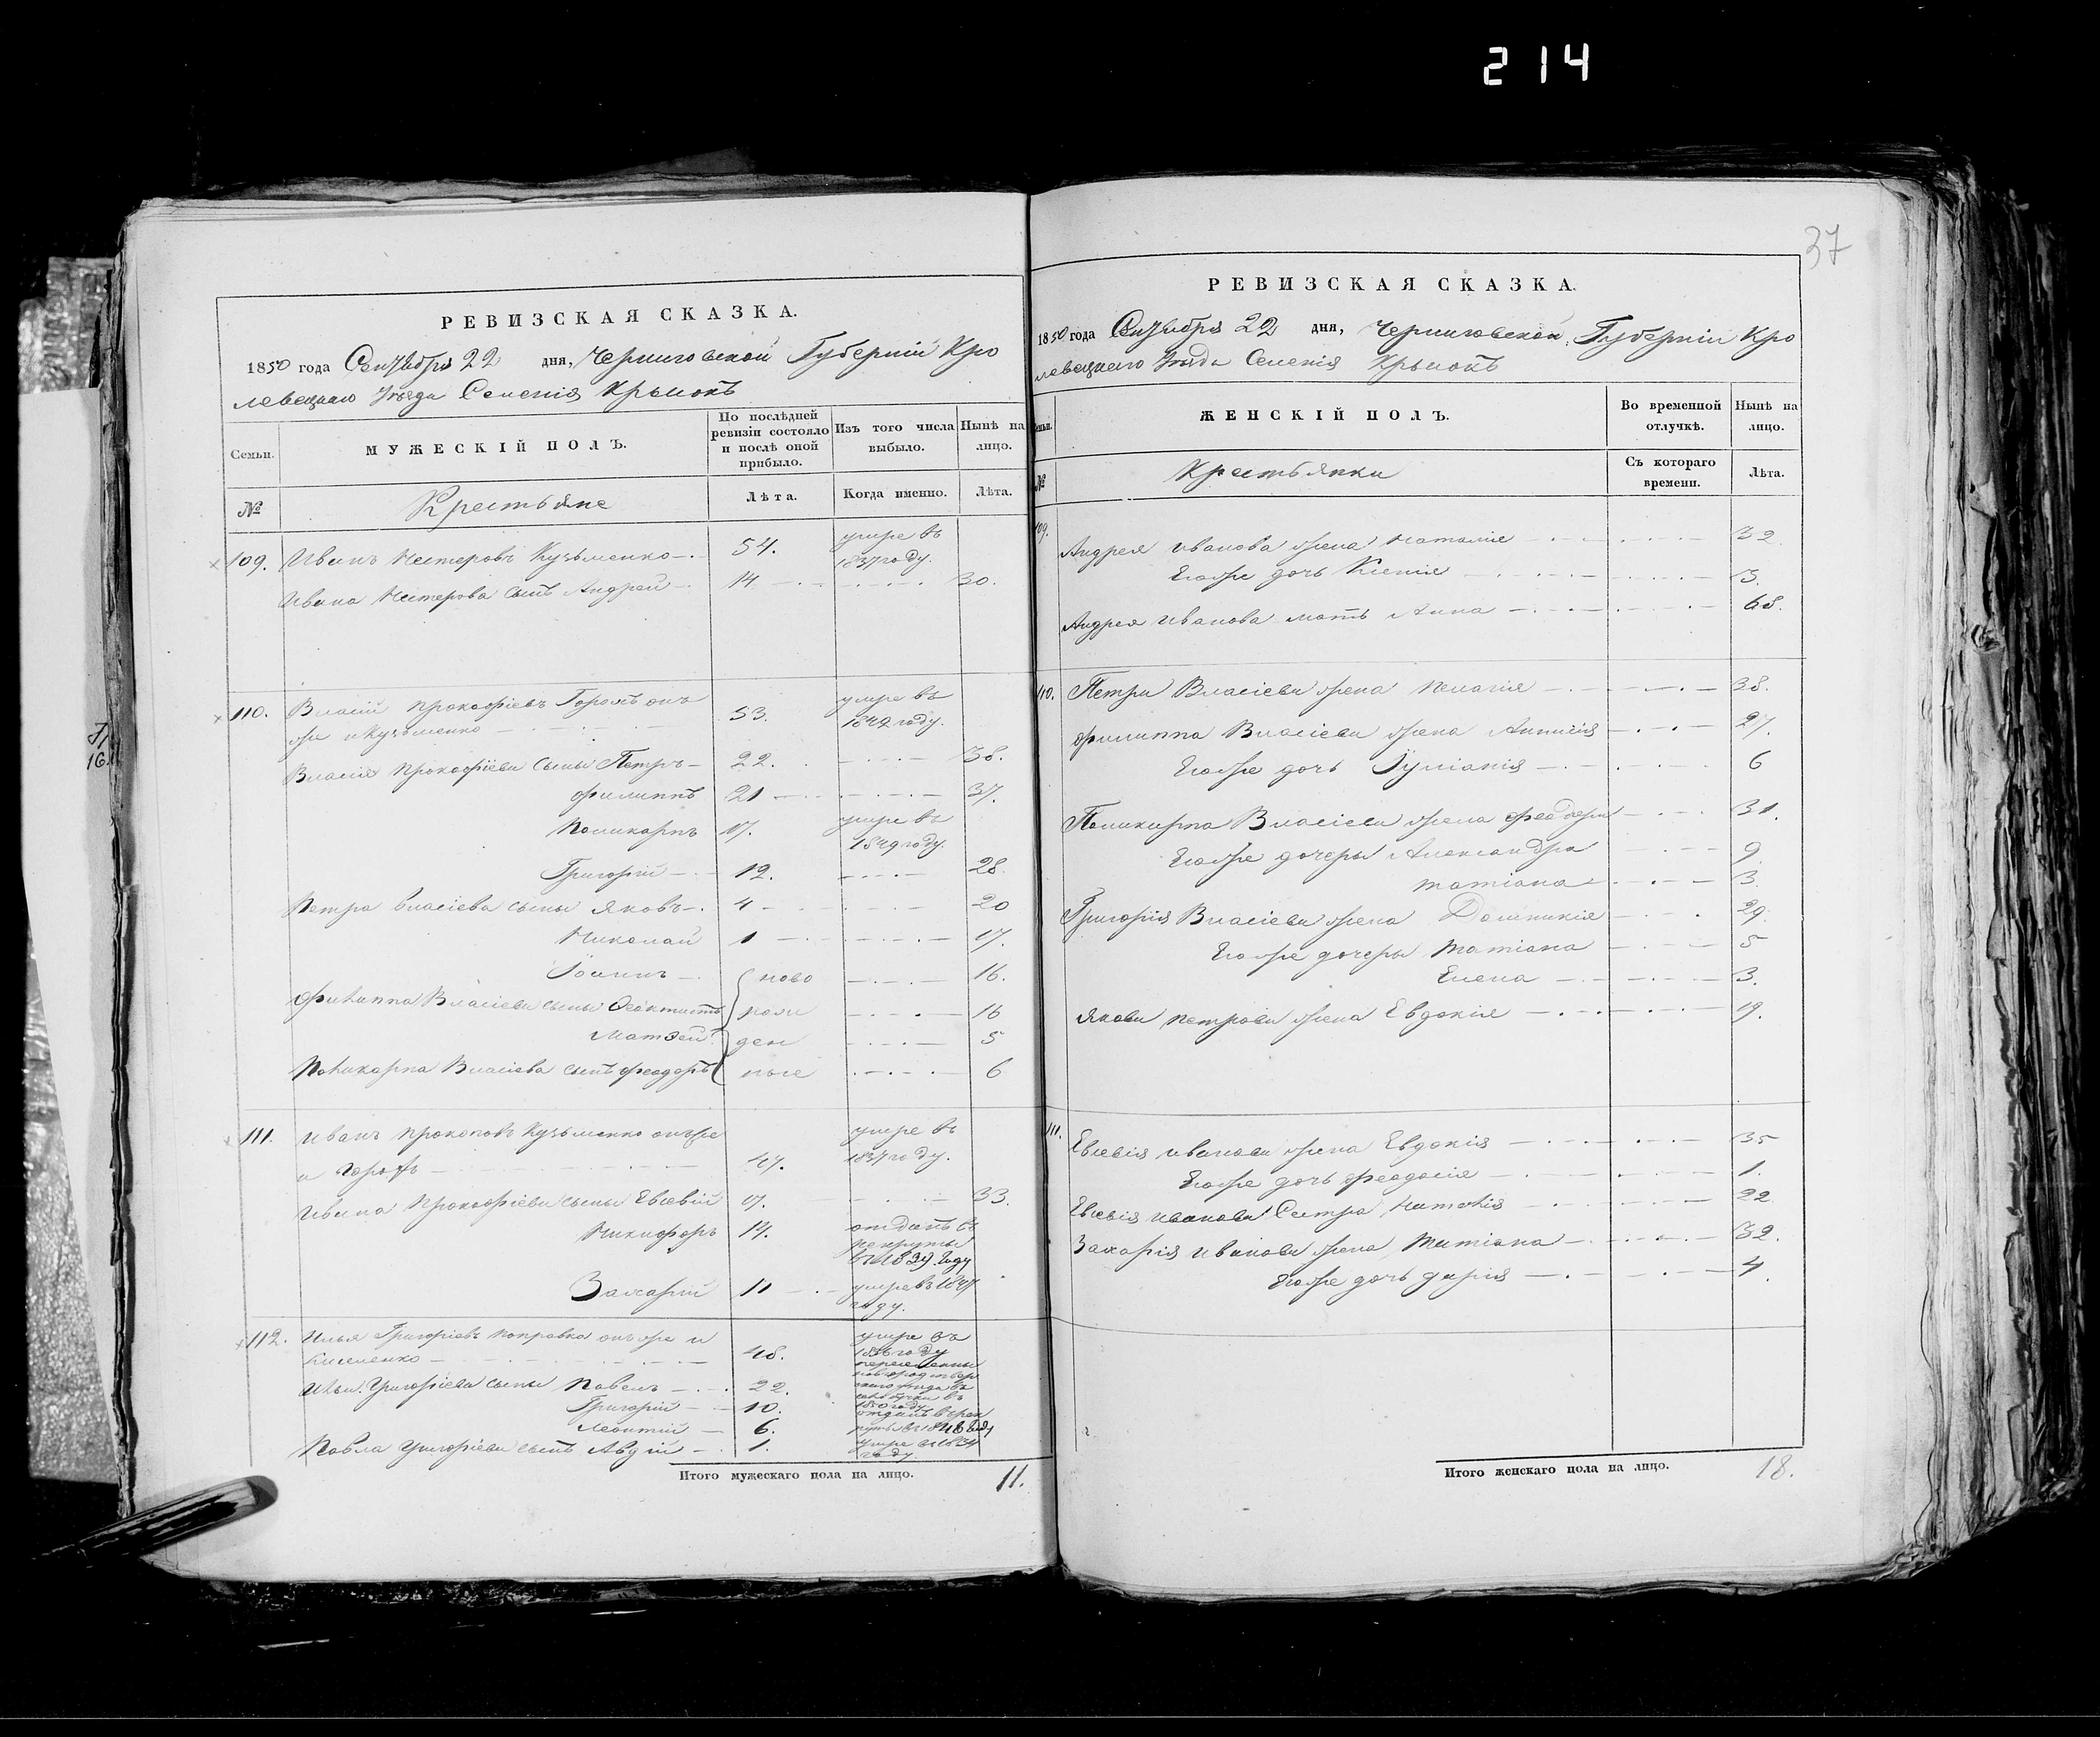 214
37
РЕВИЗСКАЯ СКАЗКА.
1850 года Сентября 22 дня, Черниговской Губерніи Кро
левецкаго Уезда Селенія
Семьи.
МУЖЕСКІЙ ПОЛЪ.
По послѣдней ревизіи состояло и послѣ оной прибыло.
Изъ того числа выбыло.
Нынѣ на лицо.
№
Крестьяне
Лѣта.
Когда именно.
Лѣта.
109. Иванъ Нестеровъ Кузьменко 54. умре въ 1837 году.
Ивана Нестерова сынъ Андрей 14 30.
110. Власій Прокофіевъ онъ
же и Кузьменко 53. умре въ 1849 году.
Власія Прокофіева сыны Петръ 22. 38.
Филиппъ 21 37.
Поликарпъ 17. умре въ 1849 году.
Григорій 12. 28.
Петра Власіева сыны Яковъ 4 20
Николай 1 17.
Іоаннъ ново 16.
Филиппа Власіева сыны Феоктистъ рож 16
Матвей ден 5
Поликарпа Власіева сынъ Феодоръ ные 6
111. Иванъ Прокоповъ Кузьменко онъ же
и 47. умре въ 1837 году.
Ивана Прокофіева сыны Евсевій 17. 33.
Никифоръ 14. отданъ въ рекруты въ 1839 году
Захарій 11 умре въ 1847 году.
112. Илья Григоріевъ Коправка онъ же и
Киселенко 48. умре въ 1836 году
Ильи Григоріева сыны Павелъ 22.
Григорій 10.
Леонтій 6.
Павла Григоріева сынъ 1. умре въ 1834 году.
Итого мужескаго пола на лицо. 11.
РЕВИЗСКАЯ СКАЗКА.
1850 года Сентября 22 дня, Черниговской Губерніи Кро
левецкаго Уезда Селенія
Семьи.
ЖЕНСКІЙ ПОЛЪ.
Во временной отлучкѣ.
Нынѣ на лицо.
№
Крестьянки
Съ котораго времени.
Лѣта.
109.
Андрея Иванова жена Наталія 32.
Егоже дочь Ксенія 3.
Андрея Иванова мать Анна 68.
110. Петра Власіева жена Пелагія 38.
Филиппа Власіева жена 27.
Егоже дочь Іуліанія 6
Поликарпа Власіева жена Феодора 31.
Егоже дочеры Александра 9
Татіана 3.
Григорія Власіева жена Домникія 29.
Егоже дочеры Татіана 5
Елена 3.
Якова Петрова жена Евдокія 19.
111. Евсевія Иванова жена Евдокія 35
Егоже дочь Феодосія 1.
Евсевія Иванова Сестра Наталія 22.
Захарія Иванова жена Татіана 32.
Егоже дочь Дарія 4.
Итого женскаго пола на лицо. 18.